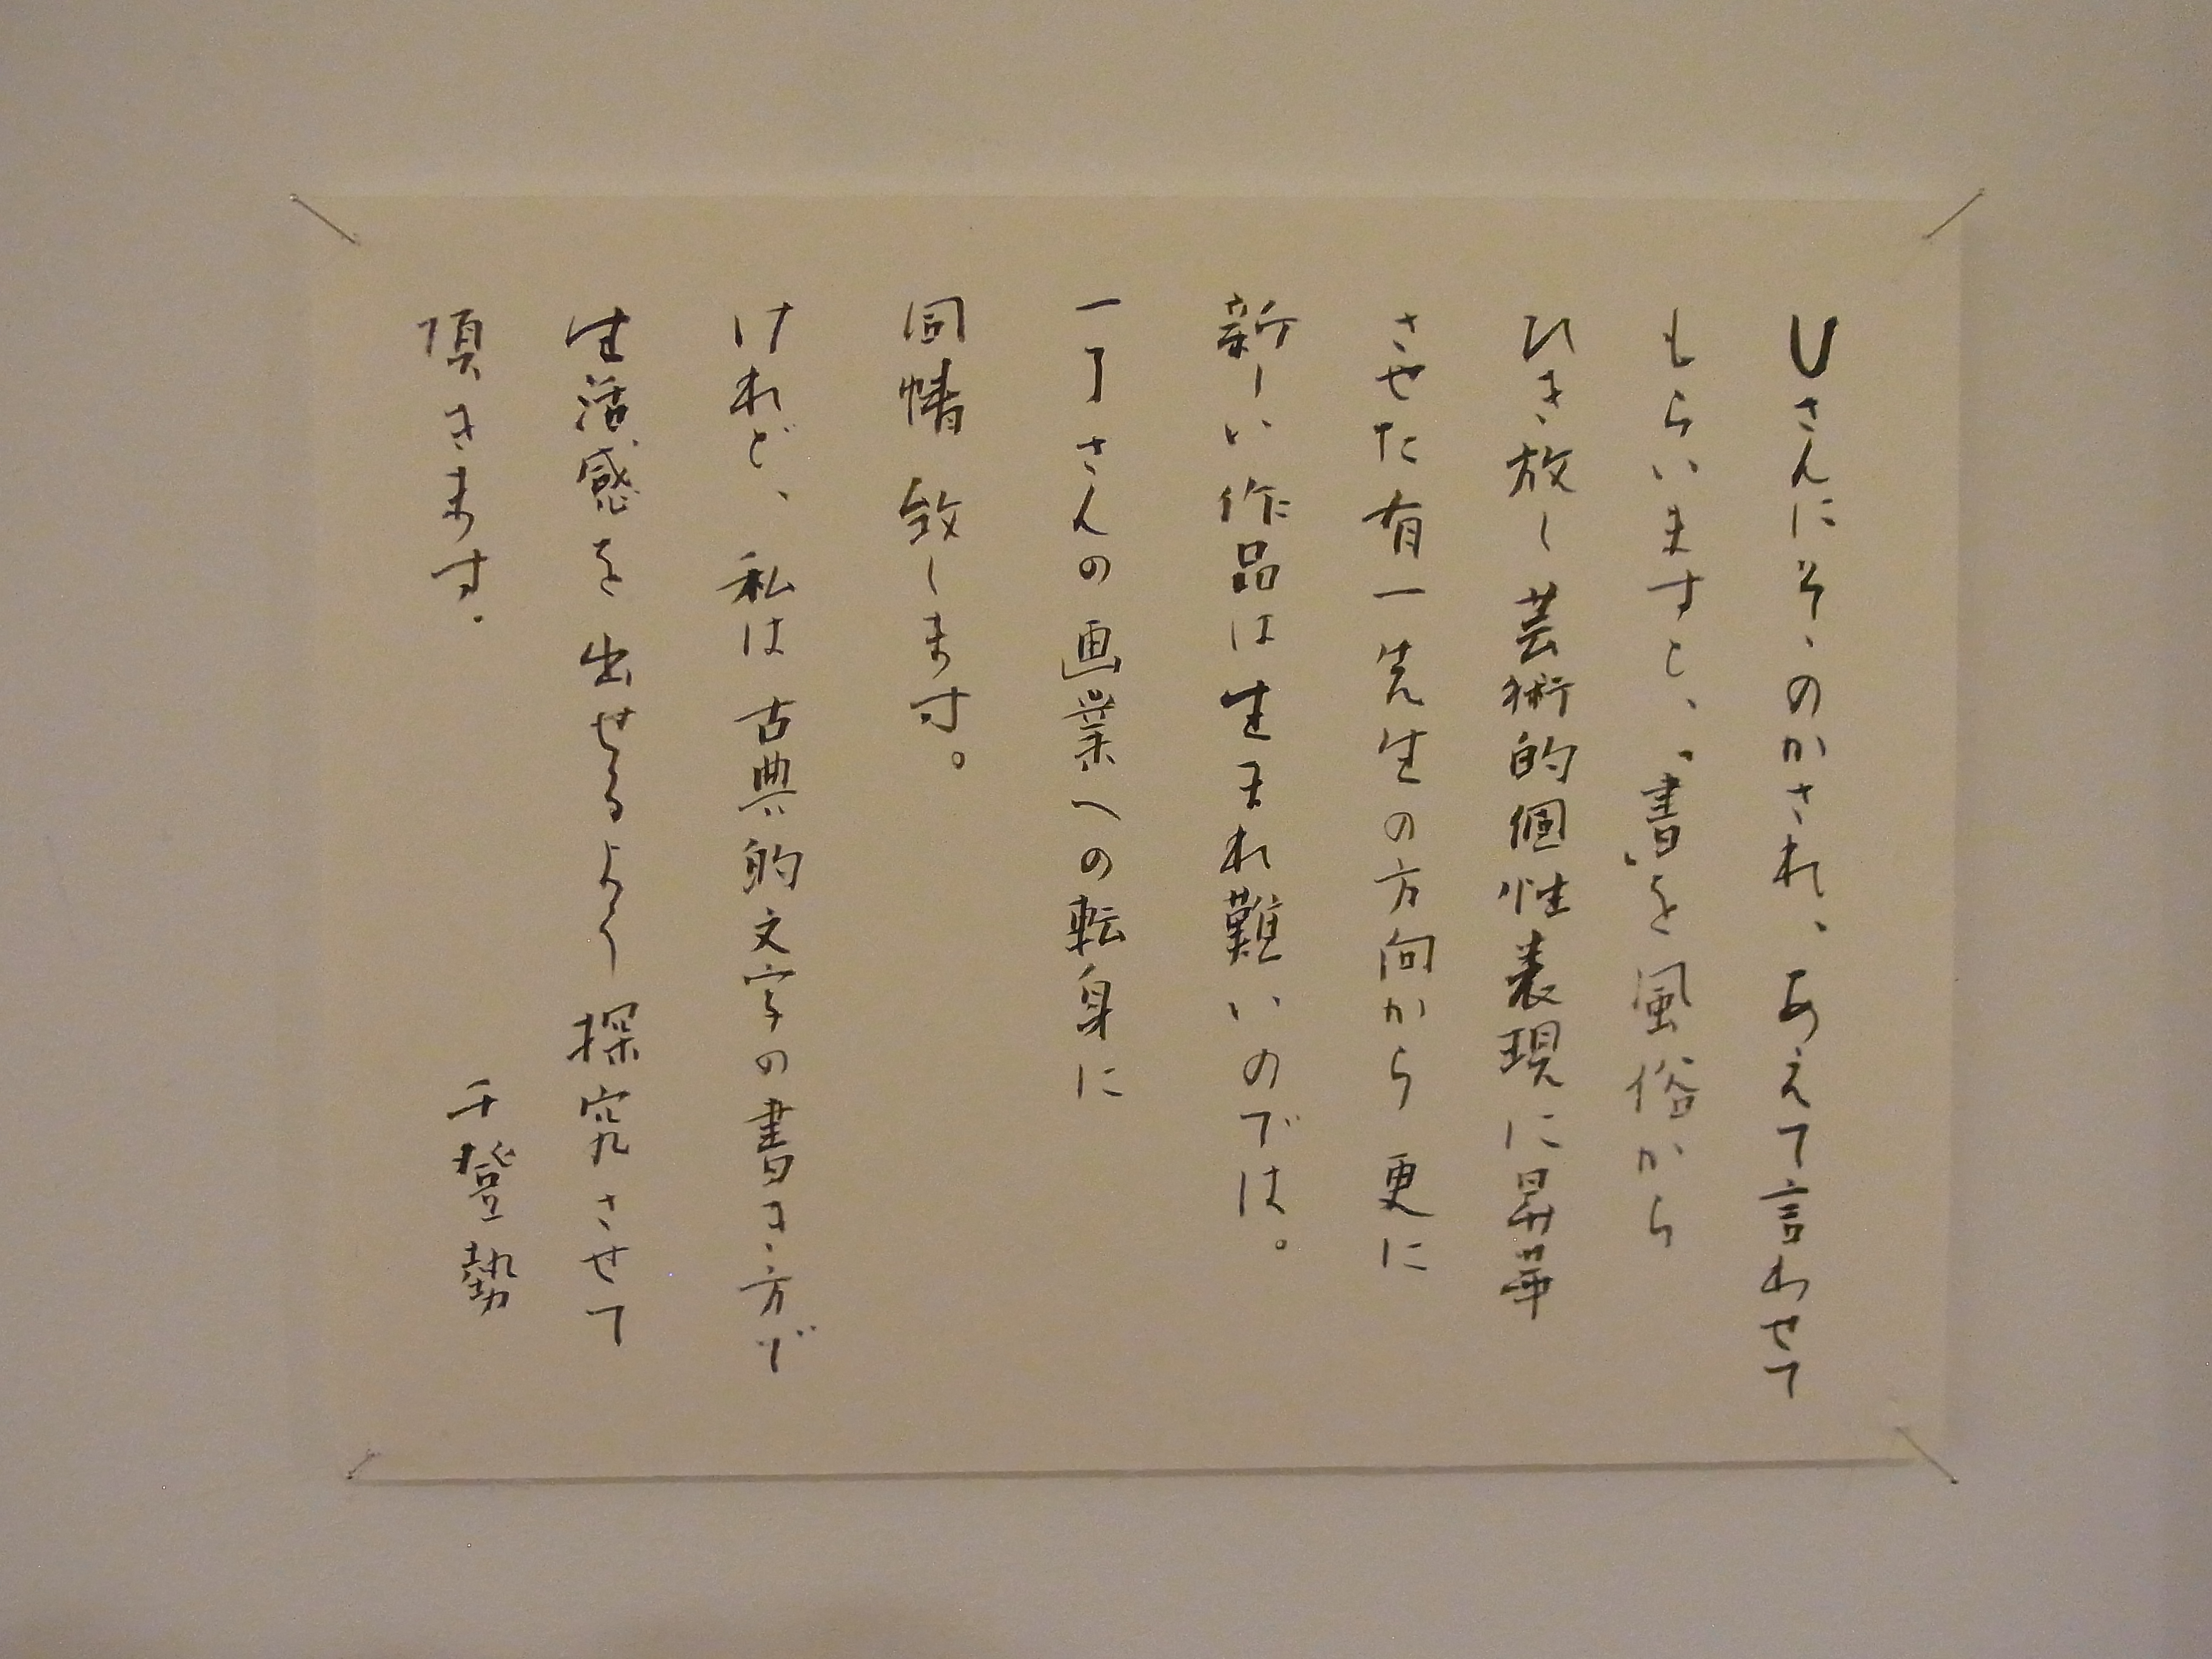 Uさんにそゝのかされ、あえて言わせて
もらいますと、「書」を風俗から
ひき放し芸術的個性表現に昇華
させた有一先生の方向から更に
新しい作品は生まれ難いのでは。
一了さんの画業への転身に
同情致します。
けれど、私は古典的文字の書き方で
生活感を出せるよう探究させて
頂きます.
千登勢